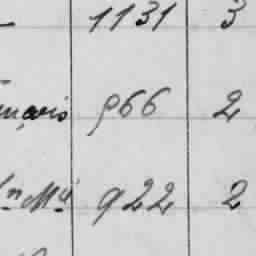 1131 3
nçois 966 2
n Mel 922 2